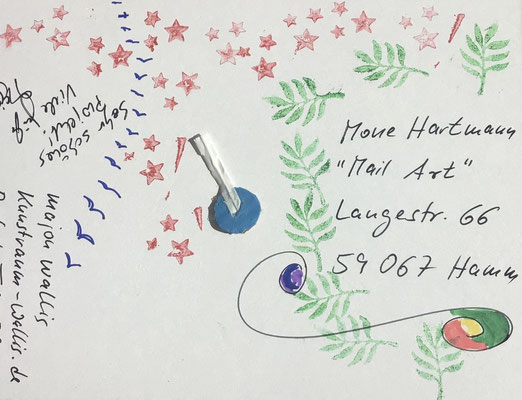 Mone Hartmann
"Mail Art"
Langestr. 66
59 067 Hamm
Sehr schönes
Projekt.
Viele
majon wallis
Kunstraum-wallis.de